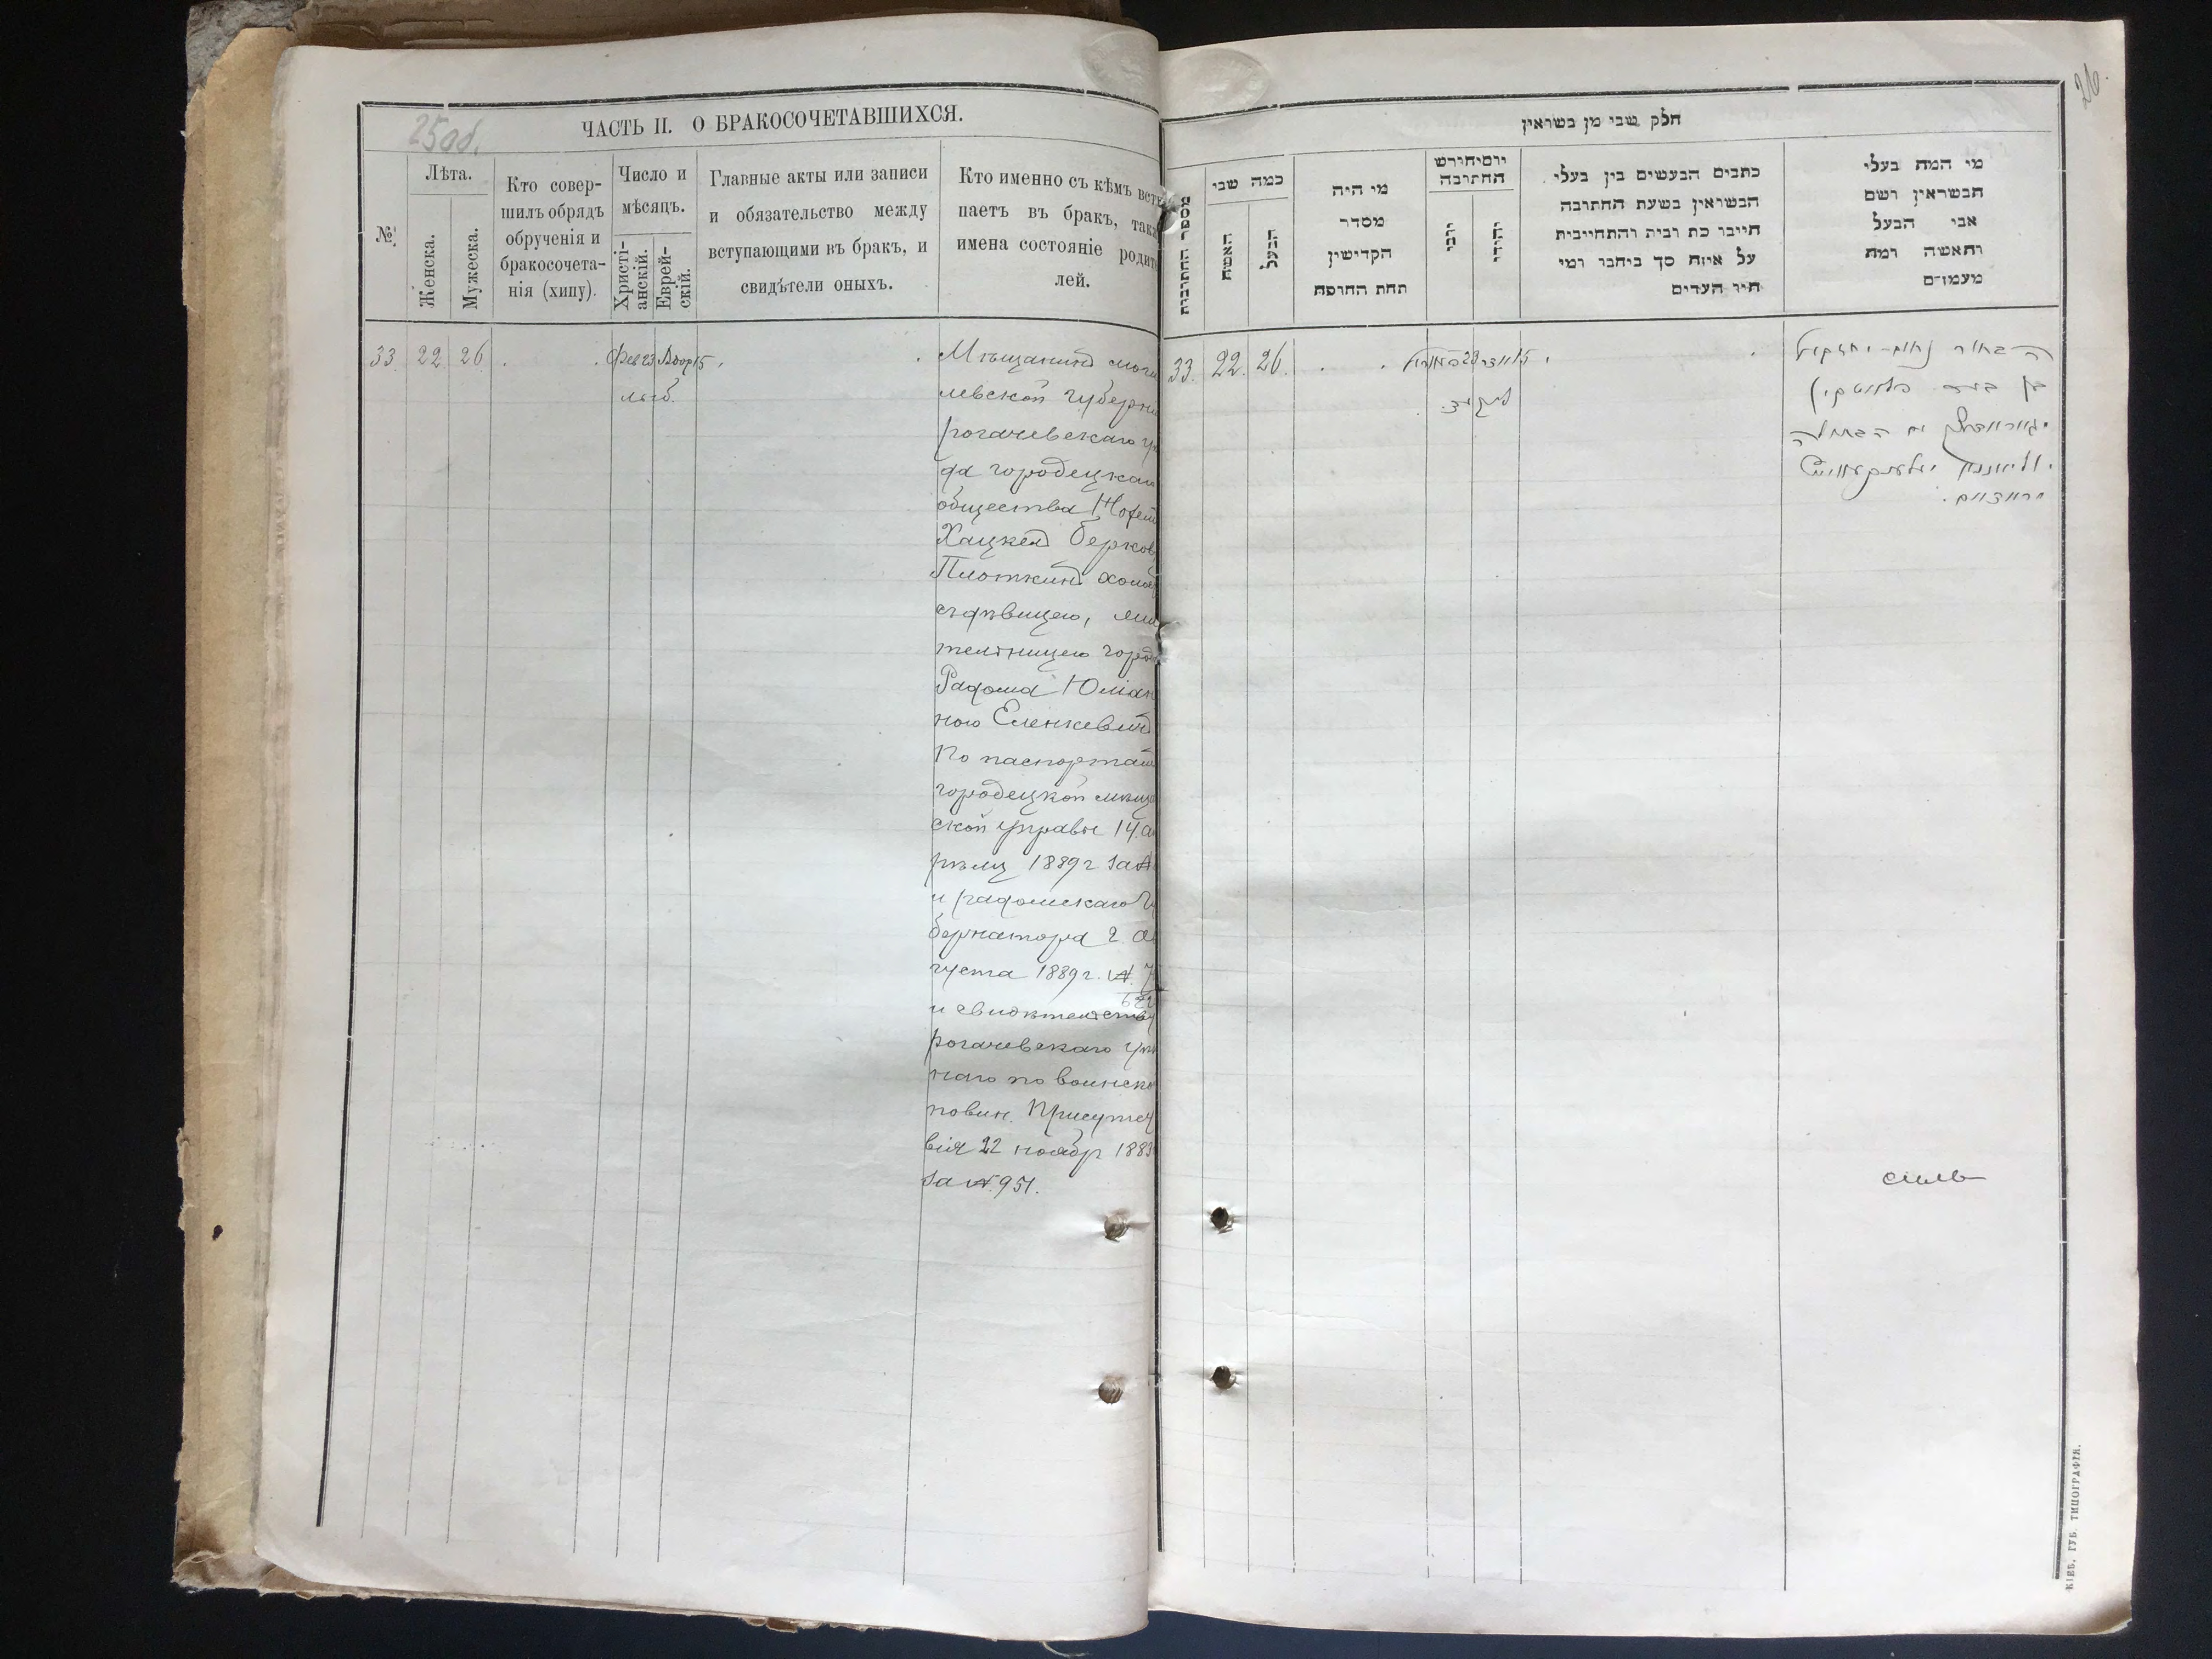 25об.
ЧАСТЬ II. О БРАКОСОЧЕТАВШИХСЯ.
№
Лѣта.
Женска.
Мужеска.
Кто совер-
шилъ обрядъ
обрученія и
бракосочета-
нія (хипу).
Число и
мѣсяцъ.
Христі-
анскій.
Еврей-
скій.
Главные акты или записи
и обязательство между
вступающими въ бракъ, и
свидѣтели оныхъ.
Кто именно съ кѣмъ всту
паетъ въ бракъ, так
имена состояніе родит
лей.
33. 22 26 Фев 23 Адор 15
Мѣщанинъ моги
левской губерн
рогачевскаго уѣ
да городецкаг
общества
Хацкель Берков
Плоткинъ холос
съ дѣвицею, жи
тельницею город
Радома Юліан
ною Еленкевичъ
По паспортам
городецкой мѣщ
ской управы 14 а
рѣля 1889 г. за №
и радомскаго гу
бернатора 2 а
густа 1889 г. № 7
622
и свидѣтельству
рогачевскаго уѣз
наго по воинско
повин. Присутст
вія 22 ноябр 1883
за № 951.
26.
חלק שבי מן בשואין
מספר החתובות
כמה שבי
האשה
הבעל
מי היה
מסדר
הקדישין
תחת החופה
יום וחורש
החתובה
יוני
יהודי
כתבים הבעשים בין בעלי
הבשואין בשעת החתובה
חייבו כת וביה והתחייבית
על איזה סך ביחבו ומי
היו העדים
מי המה בעלי
הבשואין ושם
אבי הבעל
והאשה ומה
מעמדם
33. 22. 26. 23 15
הבחור נחום-יחזקאל
בן בער פלאטקין
עם הבתולה
КІЕВ. ГУБ. ТИПОГРАФІЯ.